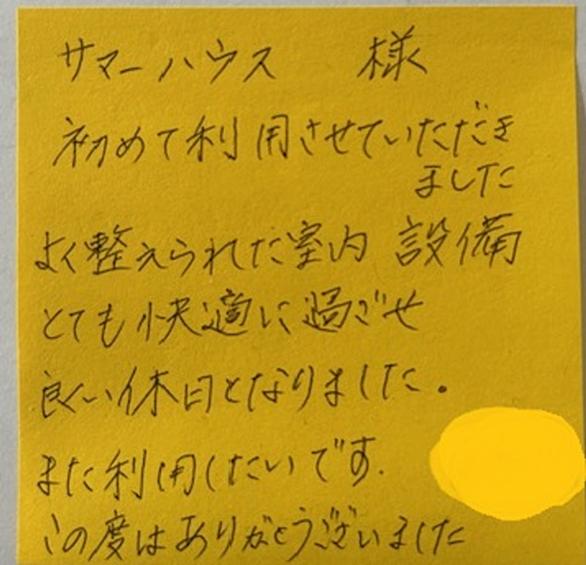 サマーハウス 様
初めて利用させていただき
ました
よく整えられた室内 設備
とても快適に過ごせ
良い休日となりました。
また利用したいです.
この度はありがとうございました